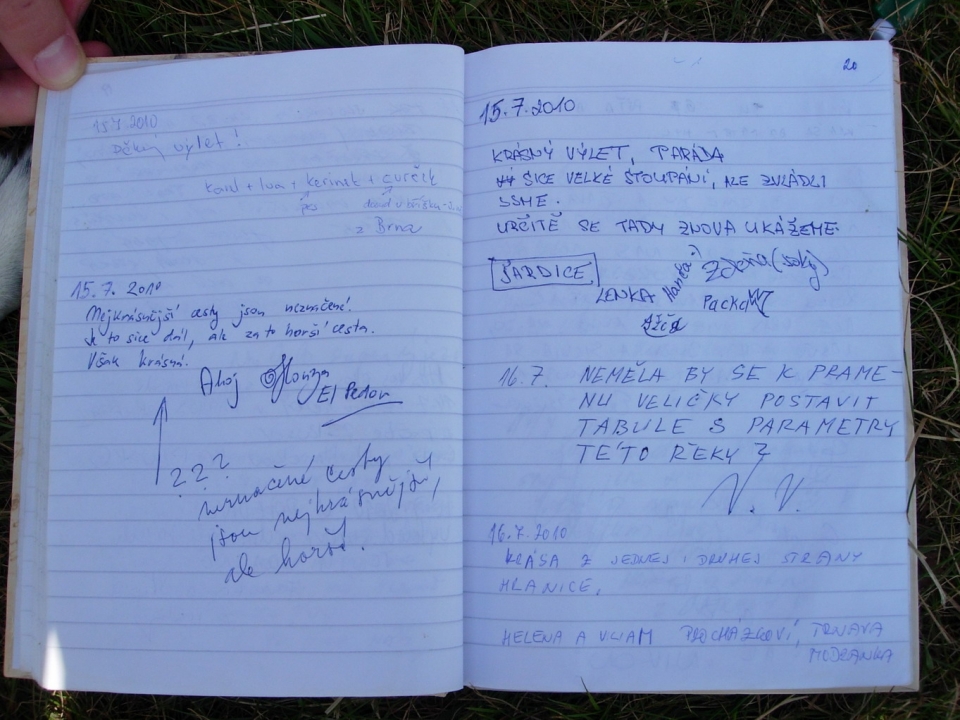 15.7.2010
Pěkný výlet!
Karel + Iva + + čureček
pes
z Brna
15.7.2010
Nejkrásnější cesty jsou neznačené.
Je to sice dál, ale zato horší cesta.
Však krásná.
Ahoj Honza
El Pedou
???
neznačené cesty
jsou nejkrásnější,
ale horší.
20
15.7.2010
KRÁSNÝ VÝLET, PARÁDA
SICE VELKÉ STOUPÁNÍ, ALE ZVLÁDLI
SSME.
URČITĚ SE TADY ZNOVA UKÁŽEME.
ŠARDICE
LENKA Hanka Zdeňa
16.7. NEMĚLA BY SE K PRAME-
NU VELIČKY POSTAVIT
TABULE S PARAMETRY
TÉTO ŘEKY?
V. V.
16.7.2010
KRÁSA Z JEDNEJ I DRUHEJ STRANY
HRANICE.
HELENA A VLIAM PROCHÁZKOVÍ, TRNAVA
MODRANKA